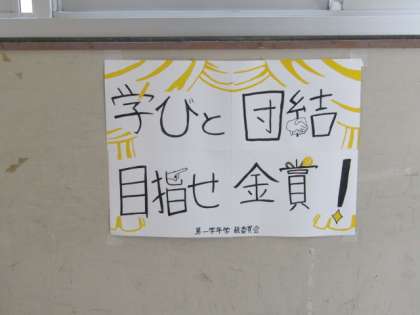 学びと団結
目指せ金賞!
第一学年 級委員会